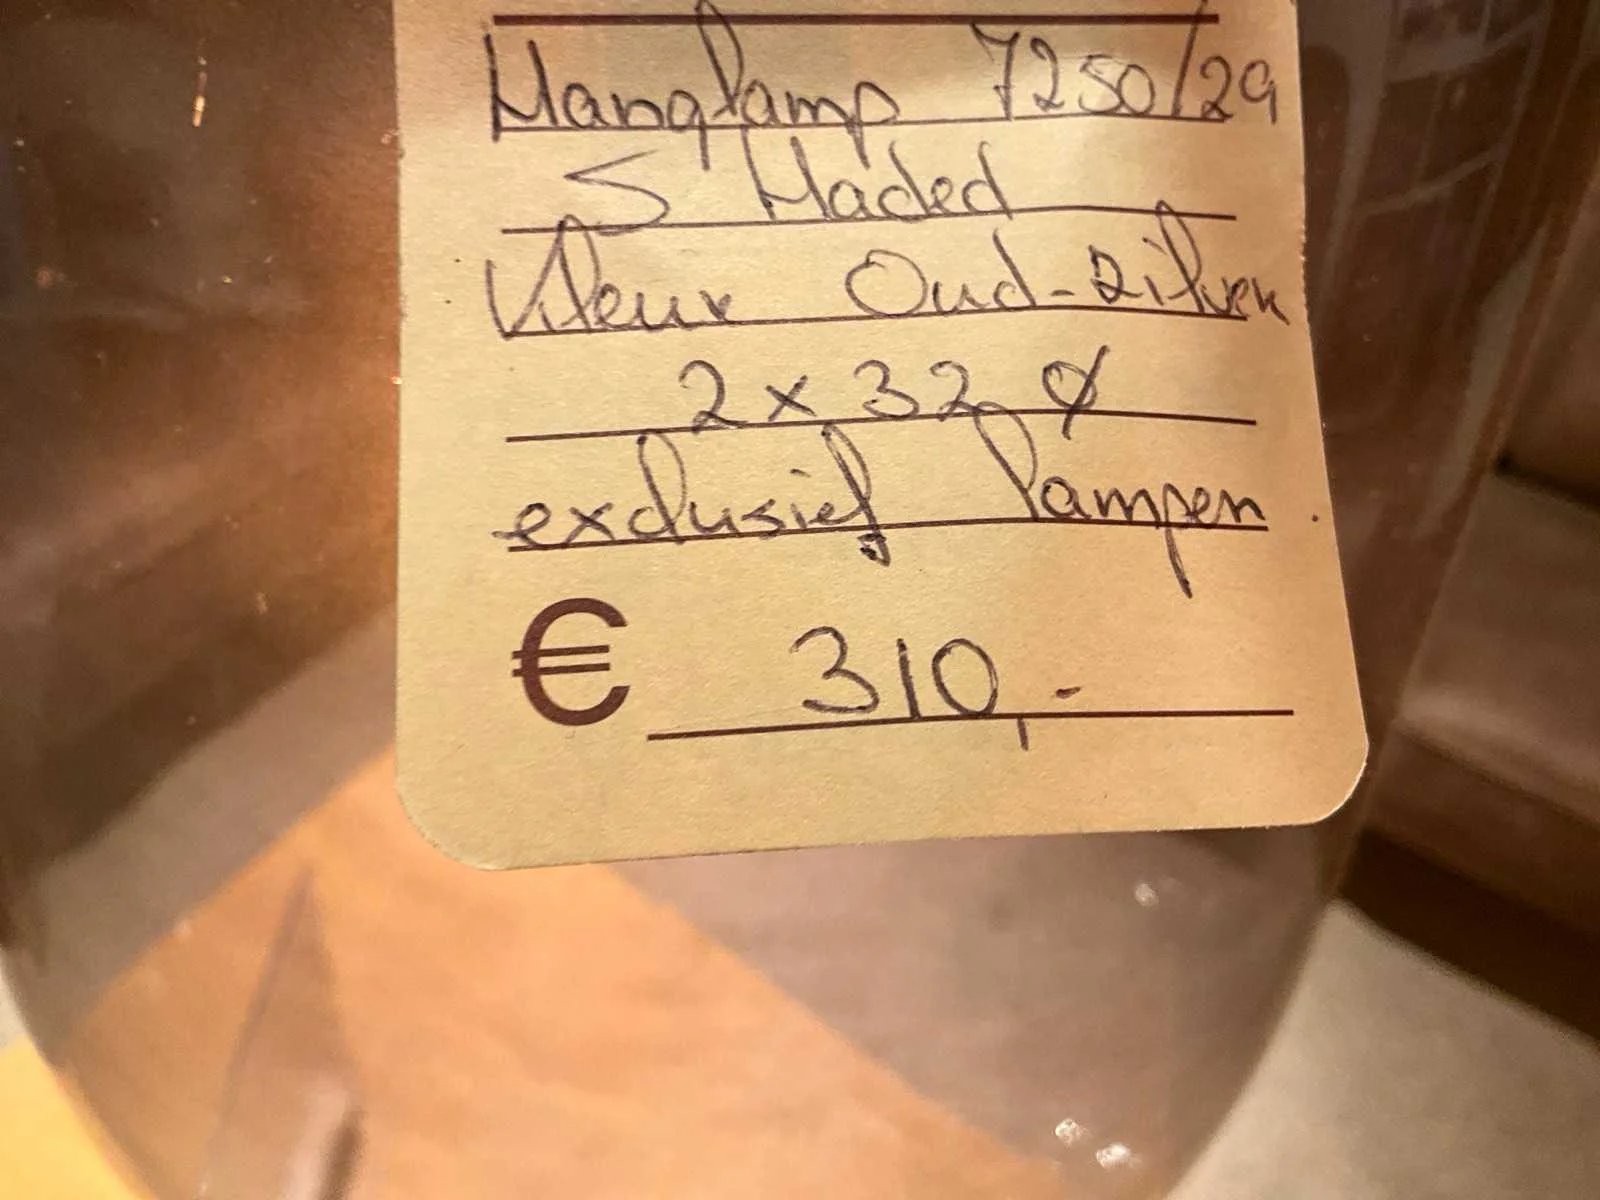 Hanglamp 7250/29
S Haded
Kleur Oud-zilver
2 x 32 Ø
exclusief lampen
€ 310,-